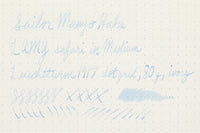 Sailor Manyo Haha
LAMY Safari in Medium
Leuchtturm 1917 dot grid, 80g, ivory